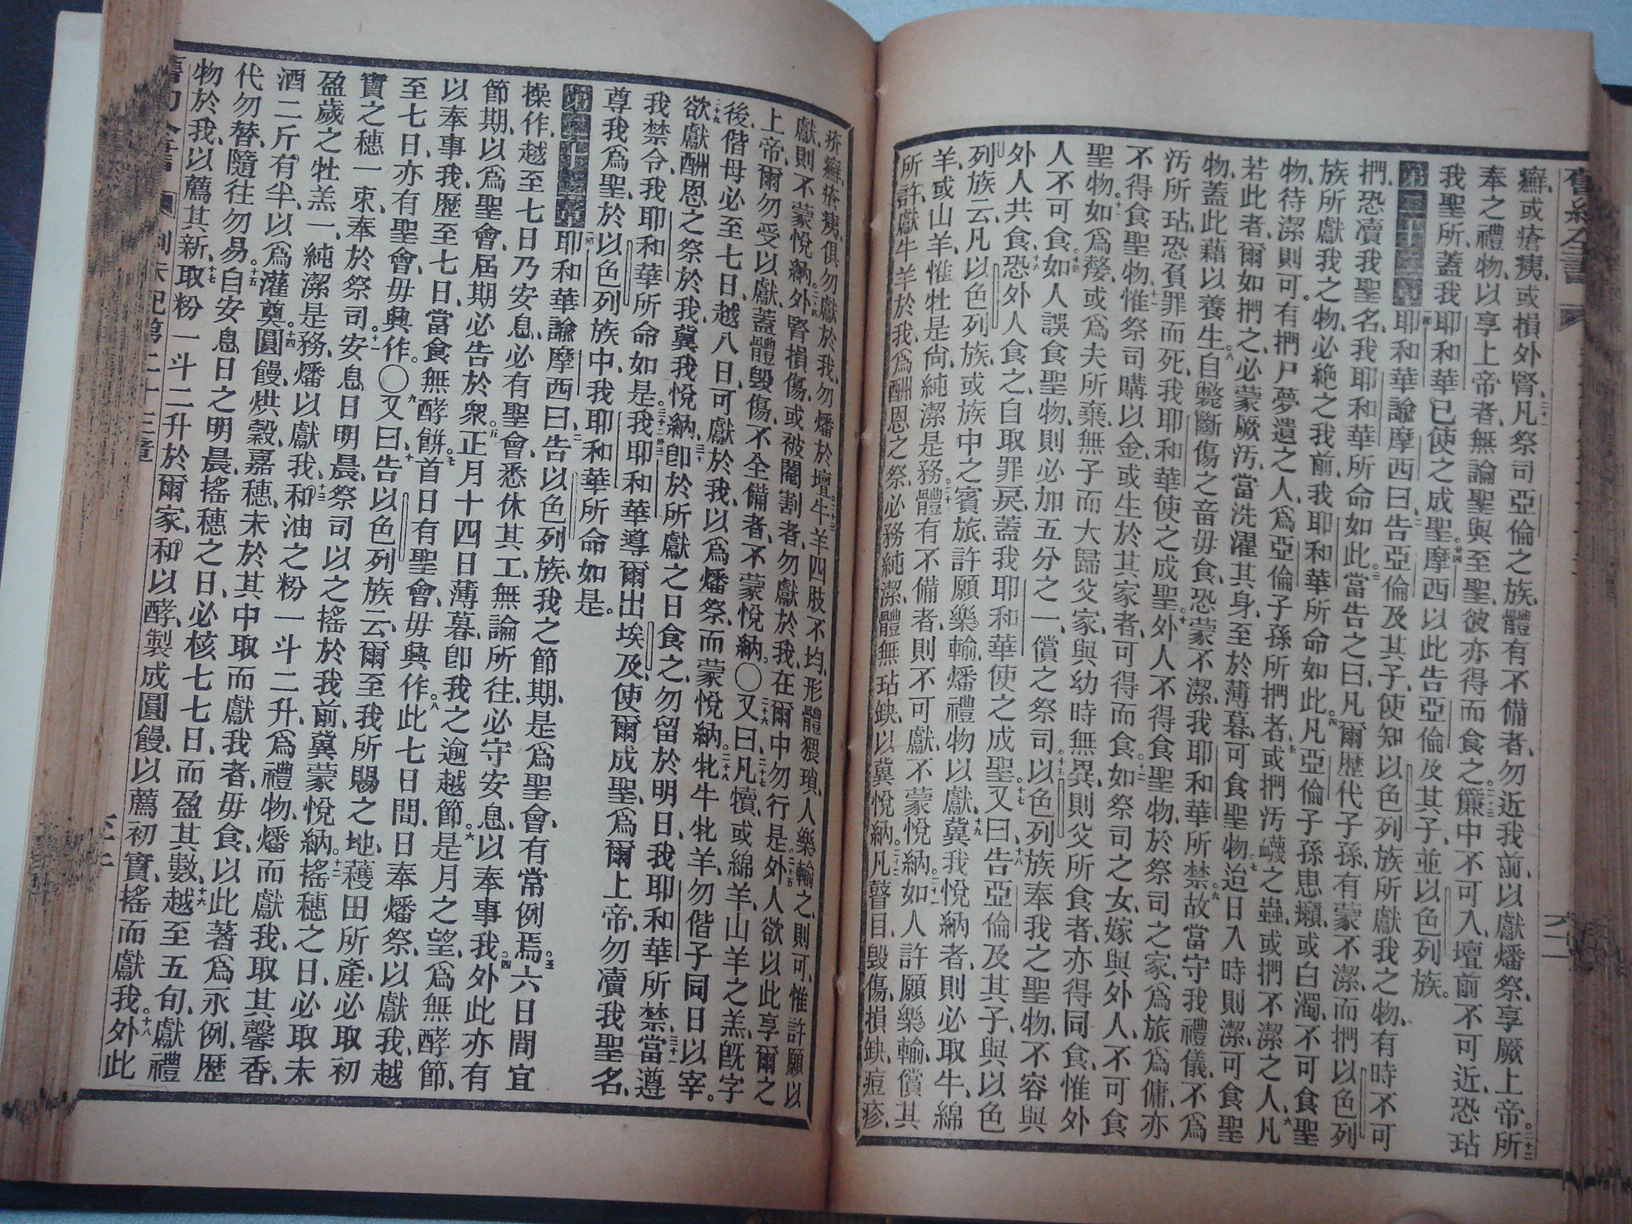 癬、或瘡痍、或損外腎、凡祭司亞倫之族、體有不備者、勿近我前、以獻燔祭、享厥上帝、所
奉之禮物、以享上帝者、無論聖與至聖、彼亦得而食之、簾中不可入、壇前不可近、恐玷
我聖所、蓋我耶和華已使之成聖。摩西以此告亞倫及其子、並以色列族。
第二十二章 耶和華諭摩西曰、告亞倫及其子、使知以色列族所獻我之物、有時不可
捫、恐凟我聖名、我耶和華所命如此。當告之曰、凡爾歷代子孫、有蒙不潔、而捫以色列
族所獻我之物、必絕之我前、我耶和華所命如此。凡亞倫子孫、患癩、或白濁、不可食聖
物、待潔則可、有捫尸夢遺之人、爲亞倫子孫所捫者、或捫汚衊之蟲、或捫不潔之人、凡
若此者、爾如捫之、必蒙厥汚、當洗濯其身、至於薄暮、可食聖物、迨日入時則潔、可食聖
物、蓋此藉以養生、自斃斷傷之畜毋食、恐蒙不潔、我耶和華所禁。故當守我禮儀、不爲
汚所玷、恐負罪而死、我耶和華使之成聖。外人不得食聖物、於祭司之家、爲旅爲傭、亦
不得食聖物、惟祭司購以金、或生於其家者、可得而食。如祭司之女、嫁與外人、不可食
聖物。如爲嫠、或爲夫所棄、無子而大歸父家、與幼時無異、則父所食者、亦得同食、惟外
人不可食。如人誤食聖物、則必加五分之一、償之祭司。以色列族奉我之聖物、不容與
外人共食、恐外人食之、自取罪戾、蓋我耶和華使之成聖。又曰、告亞倫及其子、與以色
列族云、凡以色列族、或族中之賓旅、許願樂輸、燔禮物以獻、冀我悅納者、則必取牛、綿
羊、或山羊、惟牡是尙、純潔是務、體有不備者、則不可獻、不蒙悅納。如人許願樂輸、償其
所許、獻牛羊於我、爲酬恩之祭、必務純潔、體無玷缺、以冀悅納。凡瞽目、毀傷、損缺、痘疹、
疥癬、瘡痍、俱勿獻於我、勿燔於壇。牛羊四肢不均、形體猥瑣、人樂輸之、則可、惟許願以
獻、則不蒙悅納。外腎損傷、或被閹割者、勿獻於我、在爾中勿行是。外人欲以此享爾之
上帝、爾勿受以獻、蓋體毀傷、不全備者、不蒙悅納。○又曰、凡犢、或綿羊、山羊之羔、旣字
後、偕母必至七日、越八日可獻於我、以爲燔祭、而蒙悅納。牝牛牝羊、勿偕子同日以宰。
欲獻酬恩之祭於我、冀我悅納、卽於所獻之日食之、勿留於明日、我耶和華所禁、當遵
我禁令、我耶和華所命如是。我耶和華導爾出埃及、使爾成聖、爲爾上帝、勿凟我聖名、
尊我爲聖、於以色列族中、我耶和華所命如是。
第二十三章 耶和華諭摩西曰、告以色列族、我之節期、是爲聖會、有常例焉。六日間宜
操作、越至七日乃安息、必有聖會、悉休其工、無論所往、必守安息、以奉事我、外此亦有
節期、以爲聖會、屆期必告於衆。正月十四日薄暮、卽我之逾越節。是月之望、爲無酵節、
以奉事我、歷至七日、當食無酵餅。首日有聖會、毋興作、此七日間、日奉燔祭、以獻我、越
至七日、亦有聖會、毋興作。○又曰、告以色列族云、爾至我所賜之地、穫田所產、必取初
實之穗一束、奉於祭司、安息日明晨、祭司以之搖於我前、冀蒙悅納。搖穗之日、必取未
盈歲之牡羔一、純潔是務、燔以獻我、和油之粉一斗二升、爲禮物、燔而獻我、取其馨香、
酒二斤有半、以爲灌奠。圓饅、烘穀、嘉穗、未於其中取而獻我者、毋食、以此著爲永例、歷
代勿替、隨往勿易。自安息日之明晨、搖穗之日、必核七七日、而盈其數、越至五旬、獻禮
物於我、以薦其新、取粉一斗二升、於爾家、和以酵、製成圓饅、以薦初實、搖而獻我。外此